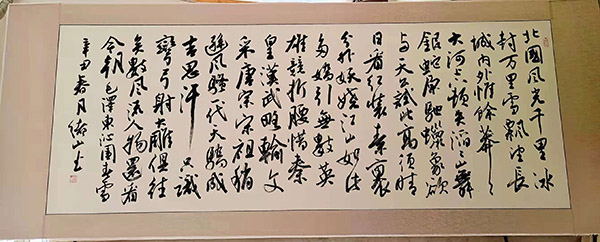 北國風光千里冰
封万里雪飘望长
城内外惟餘莽々
大河上下顿失滔々山舞
银蛇原驰蠟象欲
与天公試比高须晴
日看红装素裹
分外妖娆江山如此
多娇引無數英
雄競折腰惜秦
皇漢武略輸文
采唐宗宋祖稍
遜風骚一代天骄成
吉思汗 只識
彎弓射大雕俱往
矣數風流人物還看
今朝 毛澤東沁園春雪
辛丑春月 绪山书